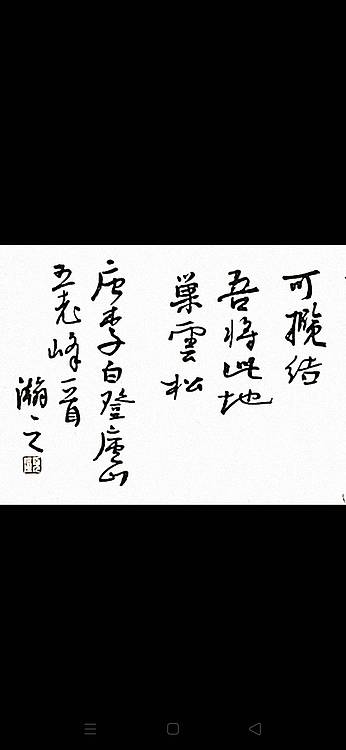 可攬結
吾將此地
巢雲松
唐李白登廬山
五老峰一首
瀚之